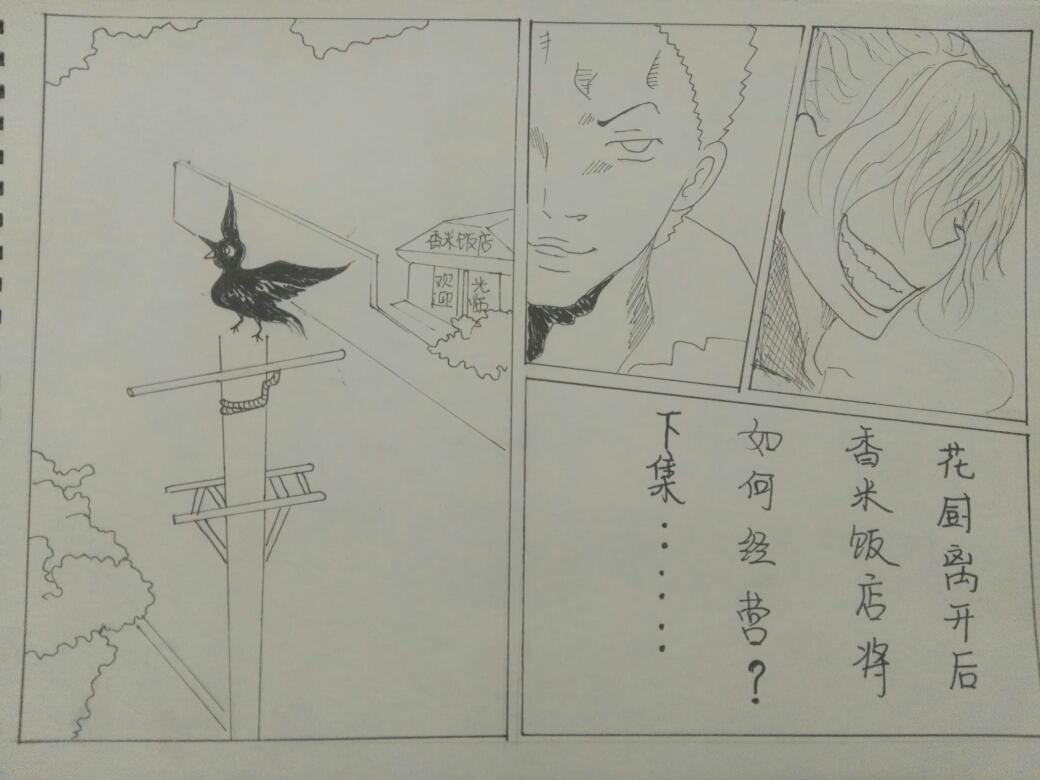 香米饭店
欢迎
光临
花厨离开后
香米饭店将
如何经营？
下集……